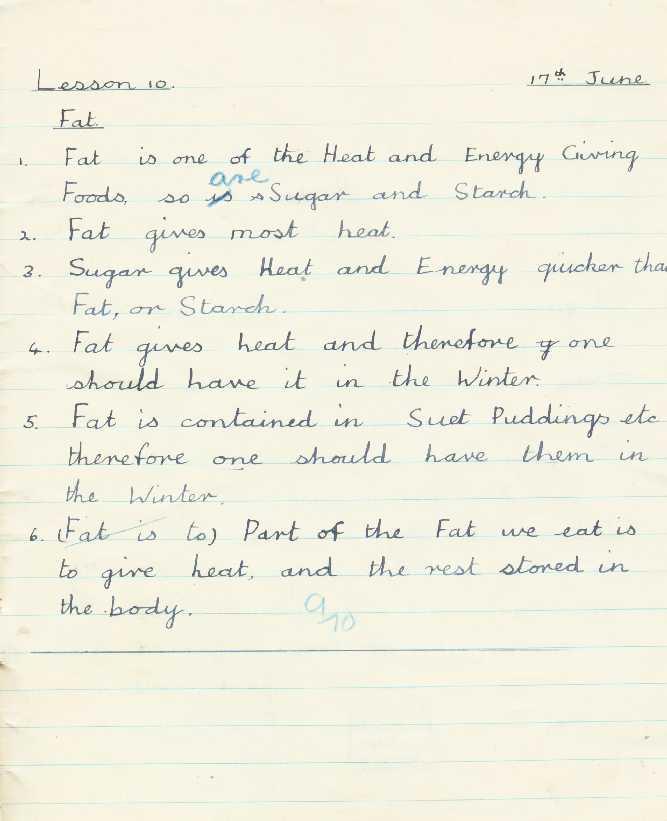 Lesson 10. 17th June
Fat.
1. Fat is one of the Heat and Energy Giving
are
Foods, so is Sugar and Starch.
2. Fat gives most heat.
3. Sugar gives Heat and Energy quicker tha
Fat, or Starch.
4. Fat gives heat and therefore y one
should have it in the Winter.
5. Fat is contained in Suet Puddings etc
therefore one should have them in
the Winter.
6. (Fat is to) Part of the Fat we eat is
to give heat, and the rest stored in
the body.
9/10